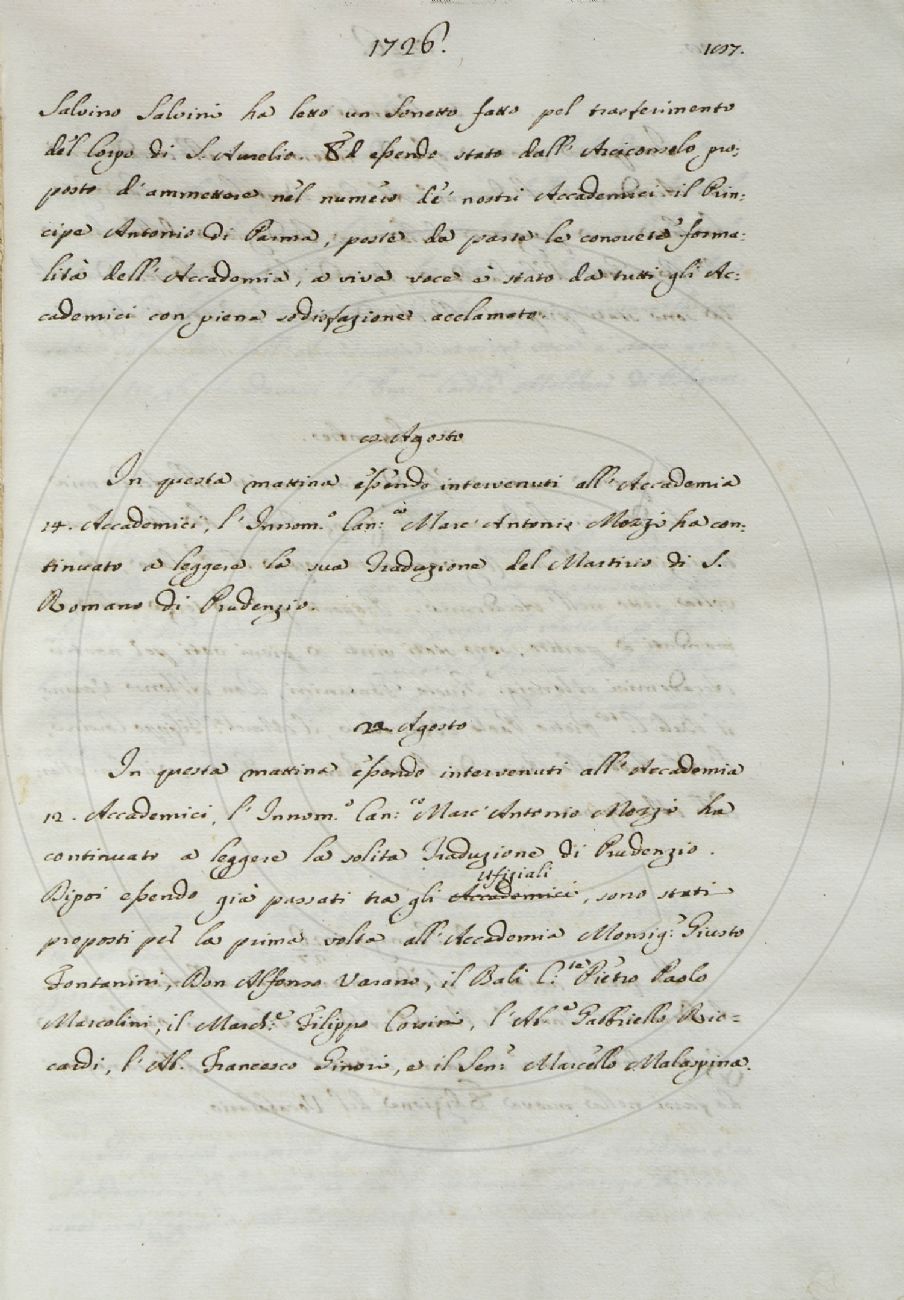 1726.
107.
Salvino Salvini ha letto un Sonetto fatto pel trasferimento
del Corpo di S. Aurelio. Ed essendo stato dall' Arciconsolo pro:
posto d'ammettere nel numero de' nostri Accademici il Prin:
cipe Antonio di Parma, poste da parte le consuete forma:
lità dell' Accademia, a viva voce è stato da tutti gli Ac:
cademici con piena sodisfazione acclamato.
Agosto
In questa mattina essendo intervenuti all' Accademia
14. Accademici, l' Innom.º Can:co Marc' Antonio Mozzi ha con:
tinuato a leggere la sua Traduzione del Martirio di S.
Romano di Prudenzio.
22. Agosto
In questa mattina essendo intervenuti all' Accademia
12. Accademici, l' Innom.º Can:co Marc' Antonio Mozzi ha
continuato a leggere la solita Traduzione di Prudenzio.
Ufiziali
Dipoi essendo già passati tra gli Accademici, sono stati
proposti per la prima volta all' Accademia Monsig.r Giusto
Fontanini, Don Alfonso Varano, il Balì C.te Pietro Paolo
Marcolini, il March.e Filippo Corsini, l' Ab.e Gabbriello Ric=
cardi, l' Ab. Francesco Ginori, e il Sen.r Marcello Malaspina.